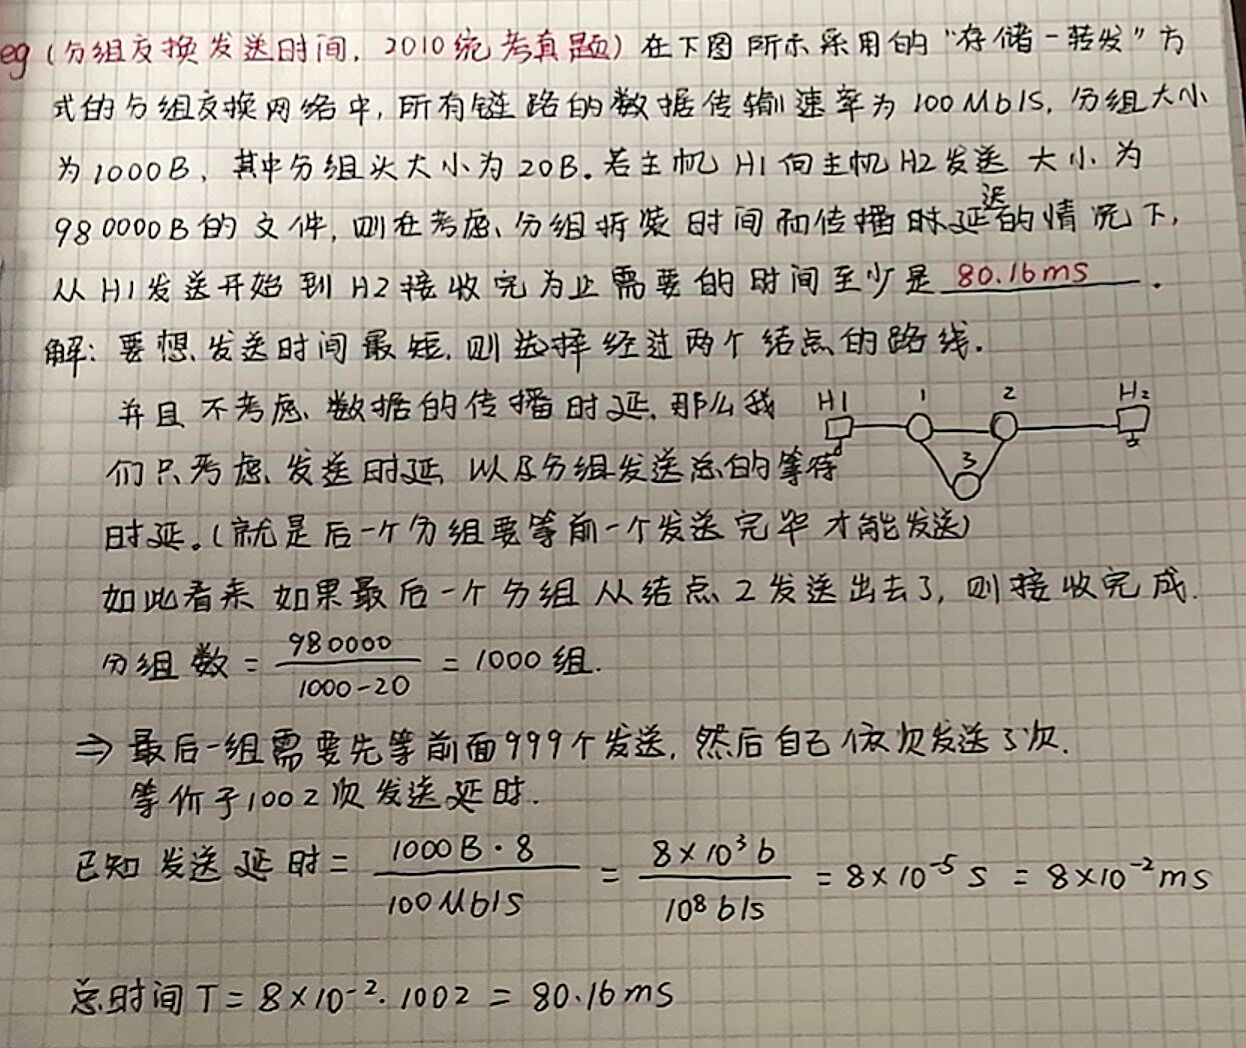 eg (分组交换发送时间, 2010统考真题) 在下图所示采用的“存储-转发”方
式的分组交换网络中, 所有链路的数据传输速率为100Mb/s, 分组大小
为1000B, 其中分组头大小为20B. 若主机H1向主机H2发送大小为
980000B的文件, 则在考虑分组拆装时间和传播时延迟的情况下,
从H1发送开始到H2接收完为止需要的时间至少是 80.16ms .
解: 要想发送时间最短, 则选择经过两个结点的路线.
并且不考虑数据的传播时延, 那么我
H1 1 2 H2
们只考虑发送时延 以及分组发送总的等待
3
时延。(就是后一个分组要等前一个发送完毕才能发送)
如此看来 如果最后一个分组从结点2发送出去了, 则接收完成.
分组数 = 980000 / 1000-20 = 1000组.
⇒ 最后一组需要先等前面999个发送, 然后自己依次发送3次.
等价于1002次发送延时.
已知发送延时 = 1000B·8 / 100Mb/s = 8×10³b / 10⁸b/s = 8×10⁻⁵s = 8×10⁻²ms
总时间T = 8×10⁻²·1002 = 80.16ms